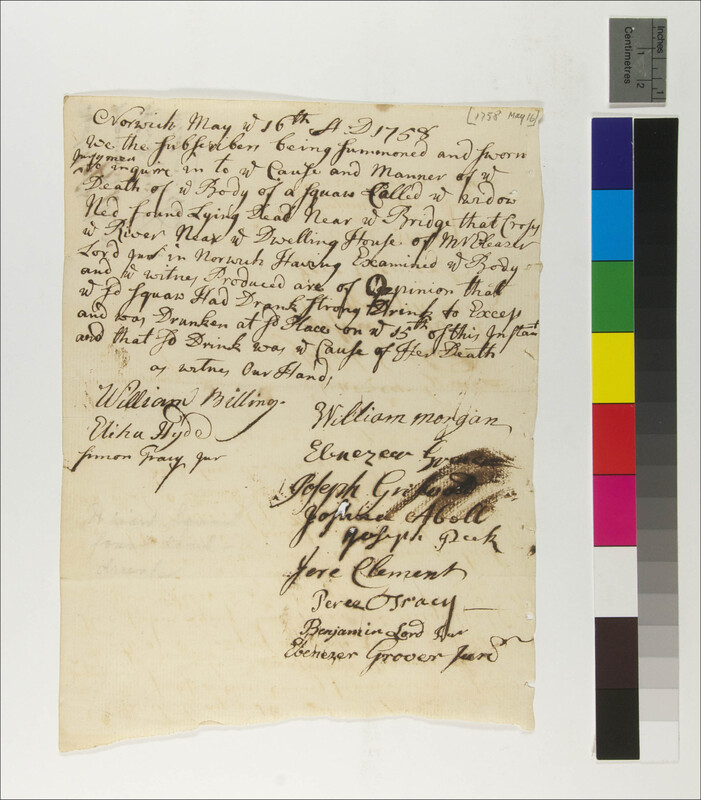 [1758 May 16]
Norwich May ye 16th A.D 1758
We the Subscribers being Summoned and Sworn
Jurymen
to inquire in to ye Cause and Manner of ye
Death of ye Body of a Squaw Called ye widow
Ned found Lying Dead Near ye Bridge that Cross
ye River Near ye Dwelling House of Mr Eleazer
Lord Jur in Norwich Having Examined ye Body
and ye witnes Produced are of Oppinion that
ye sd Squaw Had Drank Strong Drink to Excess
and was Drunken at sd Place on ye 15th of this Instant
and that sd Drink was ye Cause of Her Death
as witnes Our Hands
William Billings
Elihu Hyde
Simon Tracy Jur
William morgan
Ebenezer
Joseph Griswold
Joshua Abell
Joseph Peck
Jere Clement
Perez Tracy
Benjamin Lord Jur
Ebenezer Grover Junr
inches
Centimetres
1
2
1